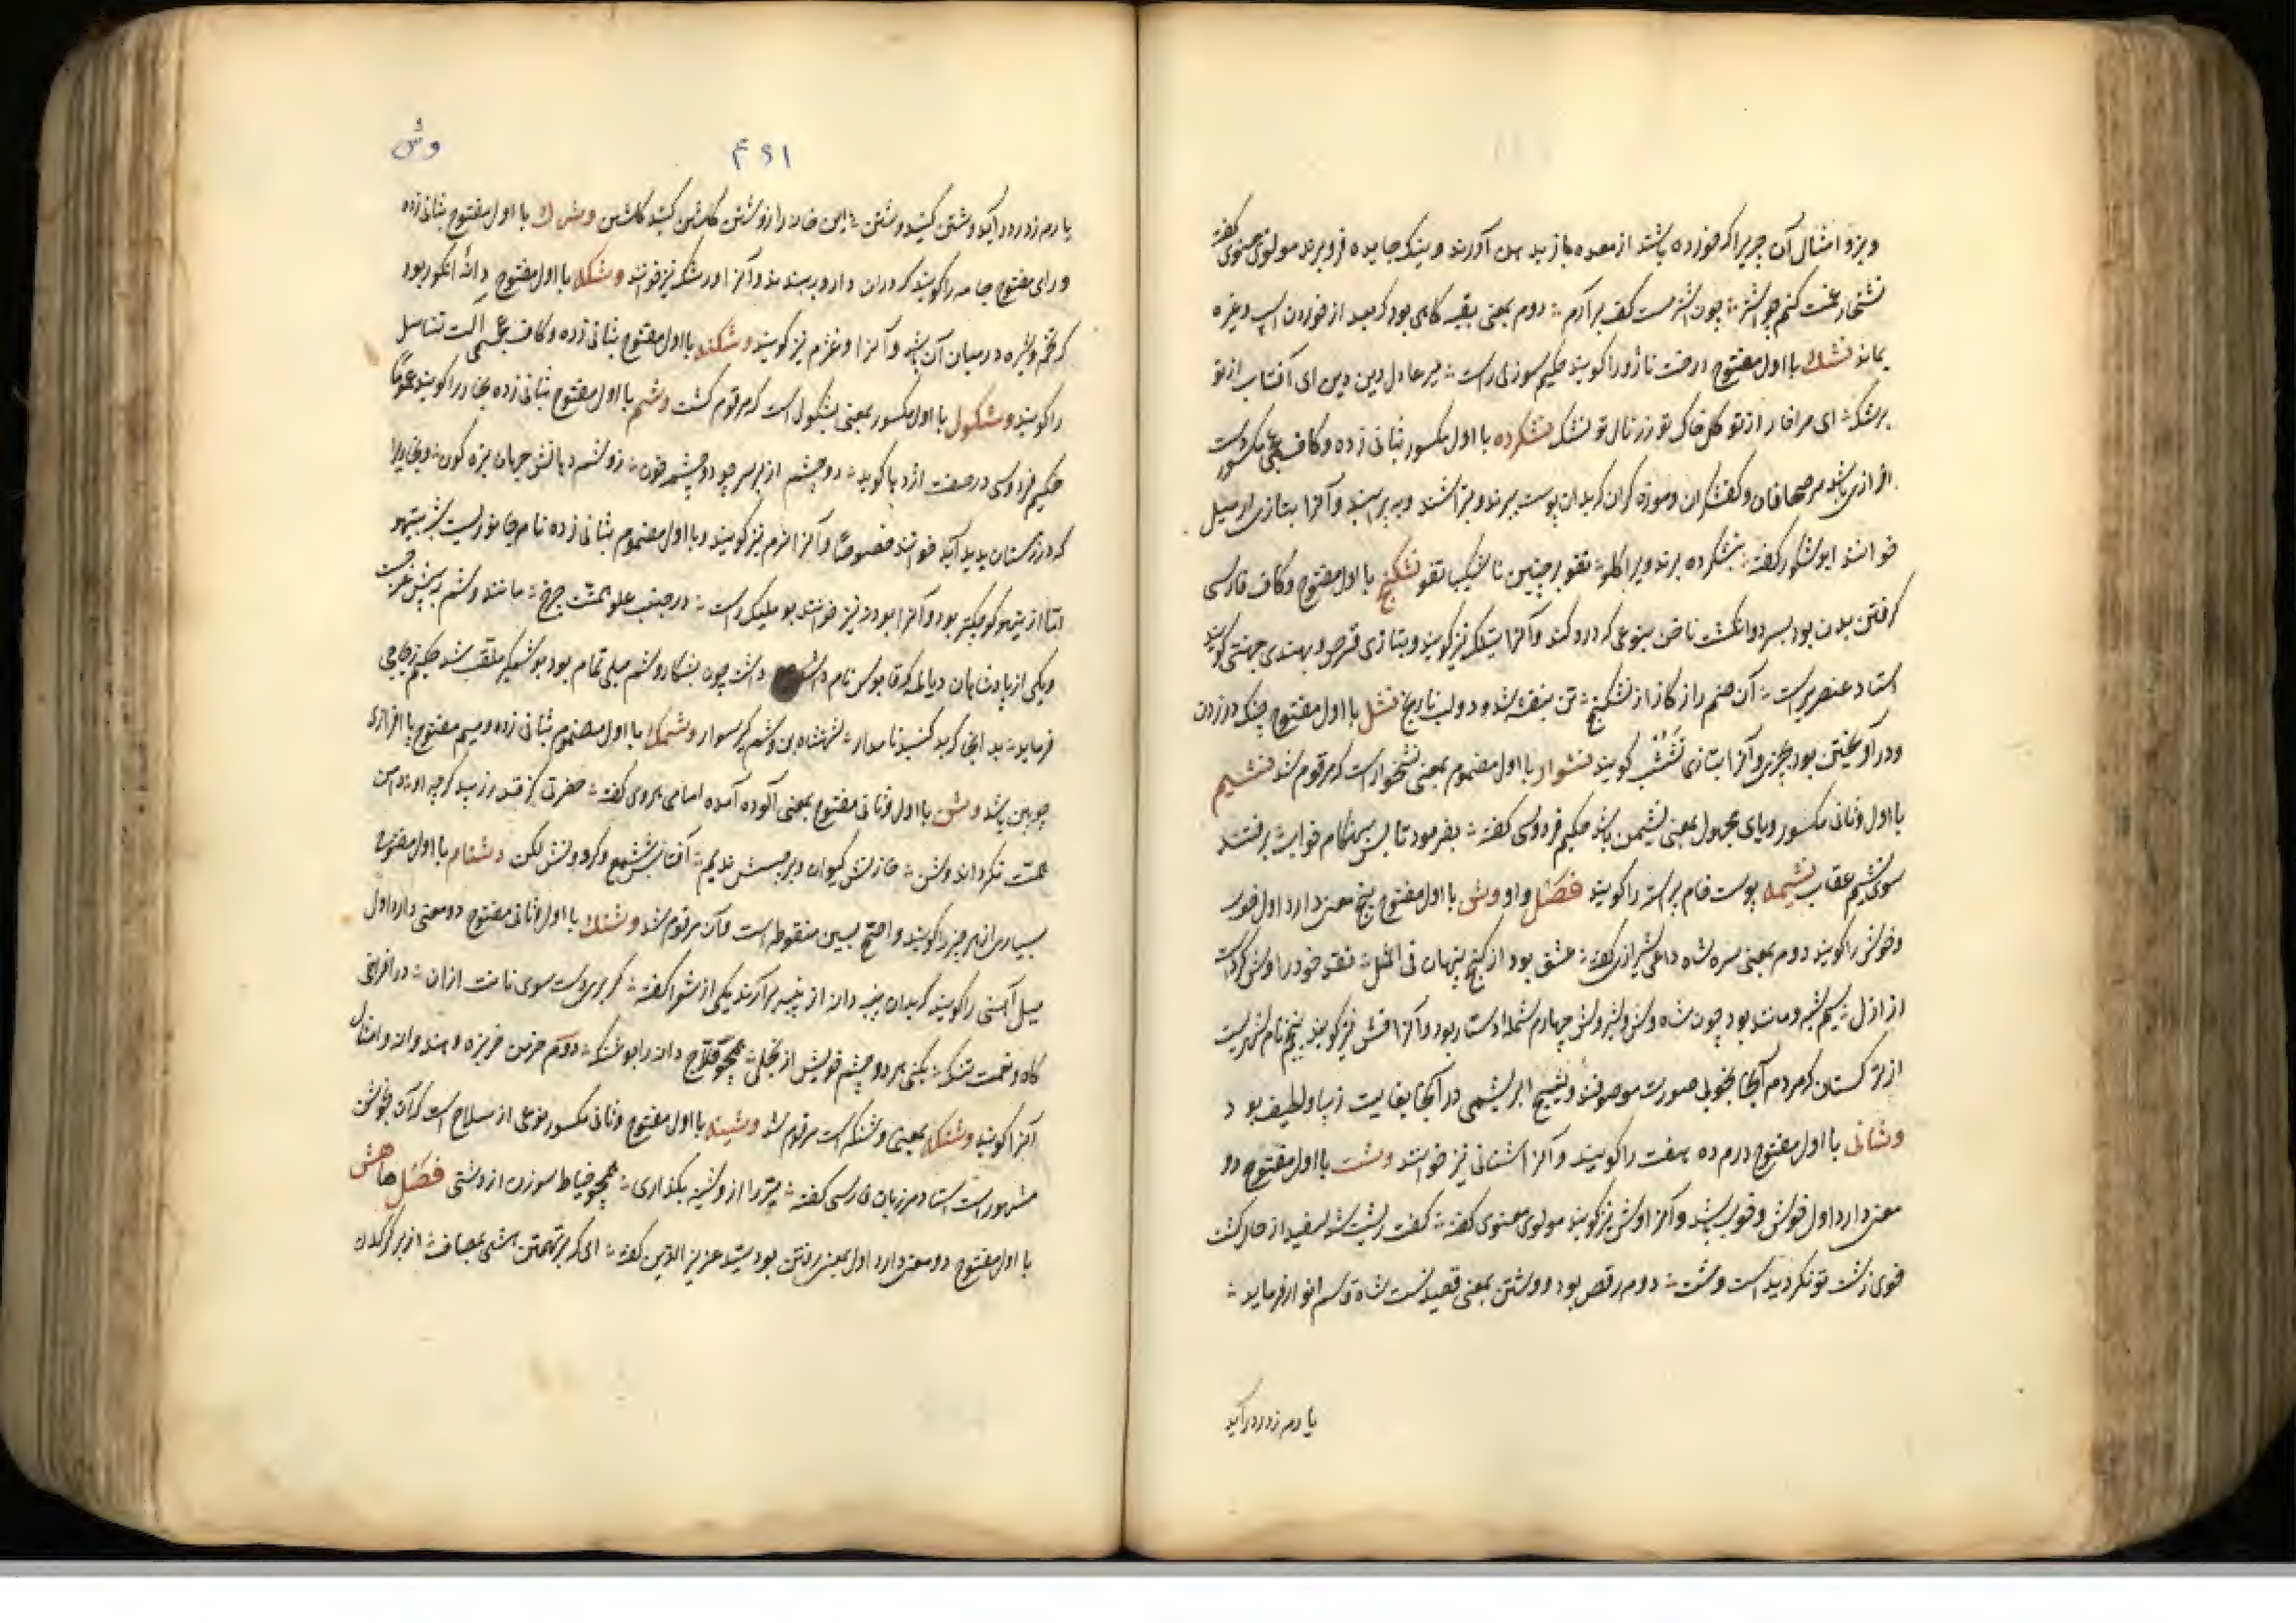 و بز و امثال آن چیزیرا که خورده باشند از معده باز بدهن آورند و نیک جاییده فرو برند مولوی معنوی گفته
نشخار غمت کنم چو اشتر چون اشتر مست کف برآرم دوم بمعنی بقیه کاهی بود که بعد از خوردن اسپ و غیره
بماند نشک با اول مفتوح درخت ناژو را گویند حکیم سوزنی راست میر عادل دین ای آفتاب از تو
برشک ای مرا فار از تو گل خاک تو زر نال تو نشک نشکرده با اول مکسور بثانی زده و کاف عجمی مکسور دست
افزاری باشد مر صحافان و کفشگران و موزه گران که بدان پوست ببرند و بتراشند و آنرا بتازی ازمیل
خوانند ابو شکور گفته بنشکرده برند ویرا گلو تفو بر چنین ناشکیب تفو نشکنج با اول مفتوح و کاف فارسی
گرفتن بدن بود بسر دو انگشت ناخن بنوعی که درد کند و آنرا نیز گویند و بتازی قرص و بهندی گویند
استاد عنصریراست آن صنم را ز گاز از نشکنج تن بنفشه شد و دو لب نارنج نشل با اول مفتوح چنگ در زدن
و در آویختن بود بچیزی و آنرا بتازی تشبث گویند نشوار با اول مضموم بمعنی نشخوار است که مرقوم شد نشیم
با اول و ثانی مکسور و یای مجهول بمعنی نشیمن باشد حکیم فردوسی گفته بفرمود تا پس بهنگام خواب برفتند
سوی نشیم عقاب نشیمه پوست خام پیراسته را گویند فصل واو وش با اول مفتوح پنج معنی دارد اول خوب
و خوش را گویند دوم بمعنی سره شاه داعی شیرازی گفته عشق بود از گنج پنهان فی المثل نقد خود را وش کرد است
از ازل سیم شبیه و مانند بود چون شاه وش و شیر وش چهارم شمله دستار بود و آنرا فش نیز گویند پنجم نام شهریست
از ترکستان که مردم آنجا بخوبی صورت موصوفند و نسیج ابریشمی در آنجا بغایت زیبا و لطیف بود
وشانی با اول مفتوح درم ده هفت را گویند و آنرا شانی نیز خوانند وشت با اول مفتوح دو
معنی دارد اول خوش و خوب باشد و آنرا وش نیز گویند مولوی معنوی گفته گفت ریشت شد سفید از حال گشت
خوی زشت تو نگردید است وشت دوم رقص بود و وشتن بمعنی رقصیدنست شاه قاسم انوار فرماید
یا رم ز در درآید
۴۹۱
وش
یارم ز در درآید وشتن کنید وشتن این خانه را ز وشتن گلشن کنید گلشن وشرک با اول مفتوح بثانی زده
و رای مفتوح جامه را گویند که در آن دارو ببندند و آنرا ورشک نیز خوانند وشکله با اول مفتوح دانه انگور بود
که تخم و شیره در میان آن باشد و آنرا نیز گویند وشکنه با اول مفتوح بثانی زده و کاف عجمی آلت تناسل
را گویند وشکول با اول مکسور بمعنی بشکول است که مرقوم گشت وشم با اول مفتوح بثانی زده بخار را گویند عموماً
حکیم فردوسی در صفت اژدها گوید دو چشم از بر سر چو دو چشمه خون ز وشم دهانش جهان تیره گون و بخاریرا
که در زمستان پدید آید خوانند خصوصاً و آنرا نزم نیز گویند و با اول مضموم بثانی زده نام جانوریست شبیه بتیهو
اما از تیهو کوچکتر بود و آنرا بودنه نیز خوانند بو ملیک راست در جنب علو همتت چرخ مانند وشم پیش چرغست
و یکی از پادشاهان دیالمه که قابوس نام داشت چون بشکار وشم میلی تمام بود بوشمگیر ملقب شد حکیم زجاجی
فرماید بدانجا گنبد نامدار شهنشاه بن وشمگیر سوار وشمک با اول مضموم بثانی زده و میم مفتوح پا افزاری
چوبین باشد وشن با اول و ثانی مفتوح بمعنی آلوده آمده امامی هروی گفته حضرتی کز قدر زیبد گر چه او دامن
همت نکرداند وشن خازنش کیوان و برجیسش ندیم آفتابش شمع و گردونش لگن وشنام با اول مضموم
بسیاری از هر چیز را گویند و اصح بسین منقوطه است و آن مرقوم شد وشنک با اول و ثانی مفتوح دو معنی دارد اول
میل آهنی را گویند که بدان پنبه دانه از پنبه برآرند یکی از شعرا گفته گر بری دست سوی نانت از آن در افراخی
گاه و نعمت تنگ بکنی هر دو چشم خویش از بخل همچو حلاج دانه را بوشنگ دوم خربزه و هندوانه و امثال
آنرا گویند وشنکه بمعنی وشنک است مرقوم شد وشینه با اول مفتوح و ثانی مکسور نوعی از سلاح است که آن بجوشن
مشهور است استاد مرزبان فارسی گفته تیر را از وشینه بگذاری همچو خیاط سوزن از وشی فصل ها هش
با اول مفتوح دو معنی دارد اول بمعنی رفتن بود سید عزیز الدین گفته ای که بر تهمتن هشی بمصاف از بر کرگدن